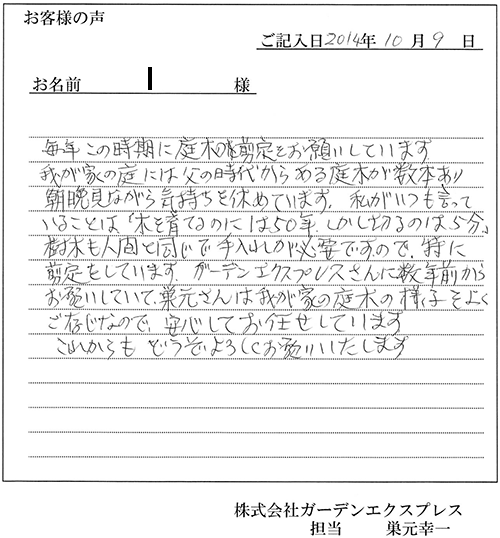 お客様の声
ご記入日2014年10月9日
お名前 I 様
毎年この時期に庭木の剪定をお願いしています
我が家の庭には父の時代からある庭木が数本あり
朝晩見ながら気持ちを休めています。私がいつも言って
いることは「木を育てるのには50年、しかし切るのは5分」
樹木も人間と同じで手入れが必要ですので、特に
剪定をしています。ガーデンエクスプレスさんに数年前から
お願いしていて、巣元さんは我が家の庭木の様子をよく
ご存じなので、安心してお任せしています
これからもどうぞよろしくお願いいたします
株式会社ガーデンエクスプレス
担当 巣元幸一